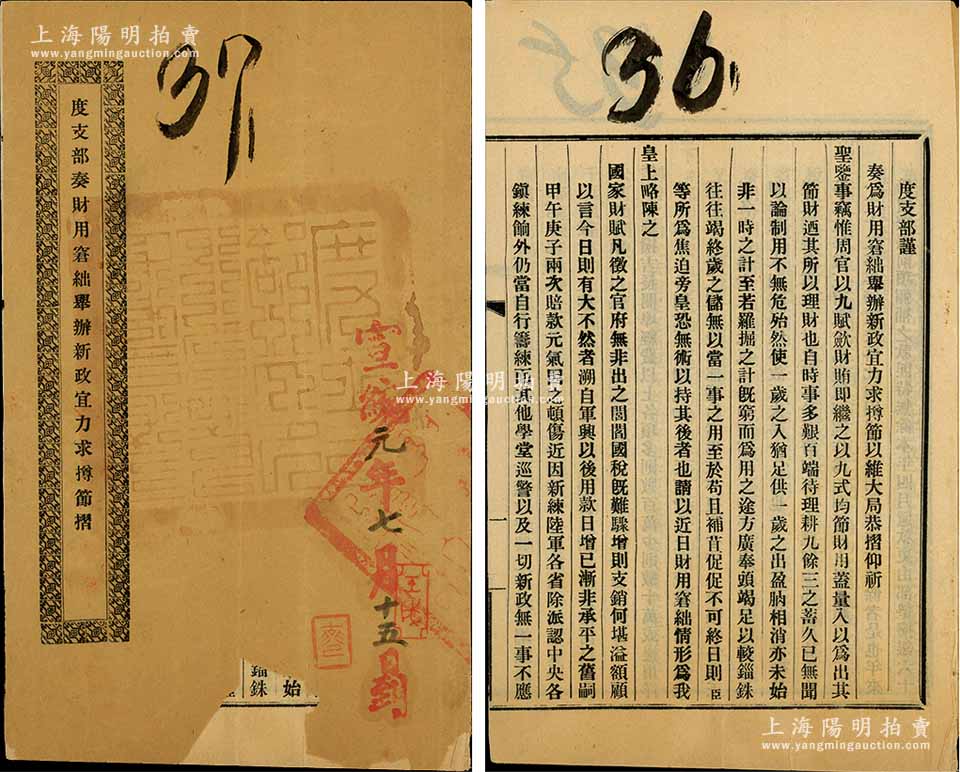 上海陽明拍賣
www.yangmingauction.com
37
度支部奏財用窘絀舉辦新政宜力求撙節摺
宣統元年七月十五日到
始
錙銖
臣
36
度支部謹
奏爲財用窘絀舉辦新政宜力求撙節以維大局恭摺仰祈
聖鑒事竊惟周官以九賦斂財賄即繼之以九式均節財用蓋量入以爲出其
節財迺其所以理財也自時事多艱百端待理耕九餘三之蓄久已無聞
以論制用不無危殆然使一歲之入猶足供一歲之出盈朒相消亦未始
非一時之計至若羅掘之計旣窮而爲用之途方廣奉頭竭足以較錙銖
往往竭終歲之儲無以當一事之用至於苟且補苴促促不可終日則臣
等所爲焦迫旁皇恐無術以持其後者也請以近日財用窘絀情形爲我
皇上略陳之
國家財賦凡徵之官府無非出之閭閻國稅旣難驟增則支銷何堪溢額顧
以言今日則有大不然者溯自軍興以後用款日增已漸非承平之舊嗣
甲午庚子兩次賠款元氣爲之頓傷近因新練陸軍各省除派認中央各
鎭練餉外仍當自行籌練而其他學堂巡警以及一切新政無一事不應
上海陽明拍賣
www.yangmingauction.com
上海陽明拍賣
www.yangmingauction.com